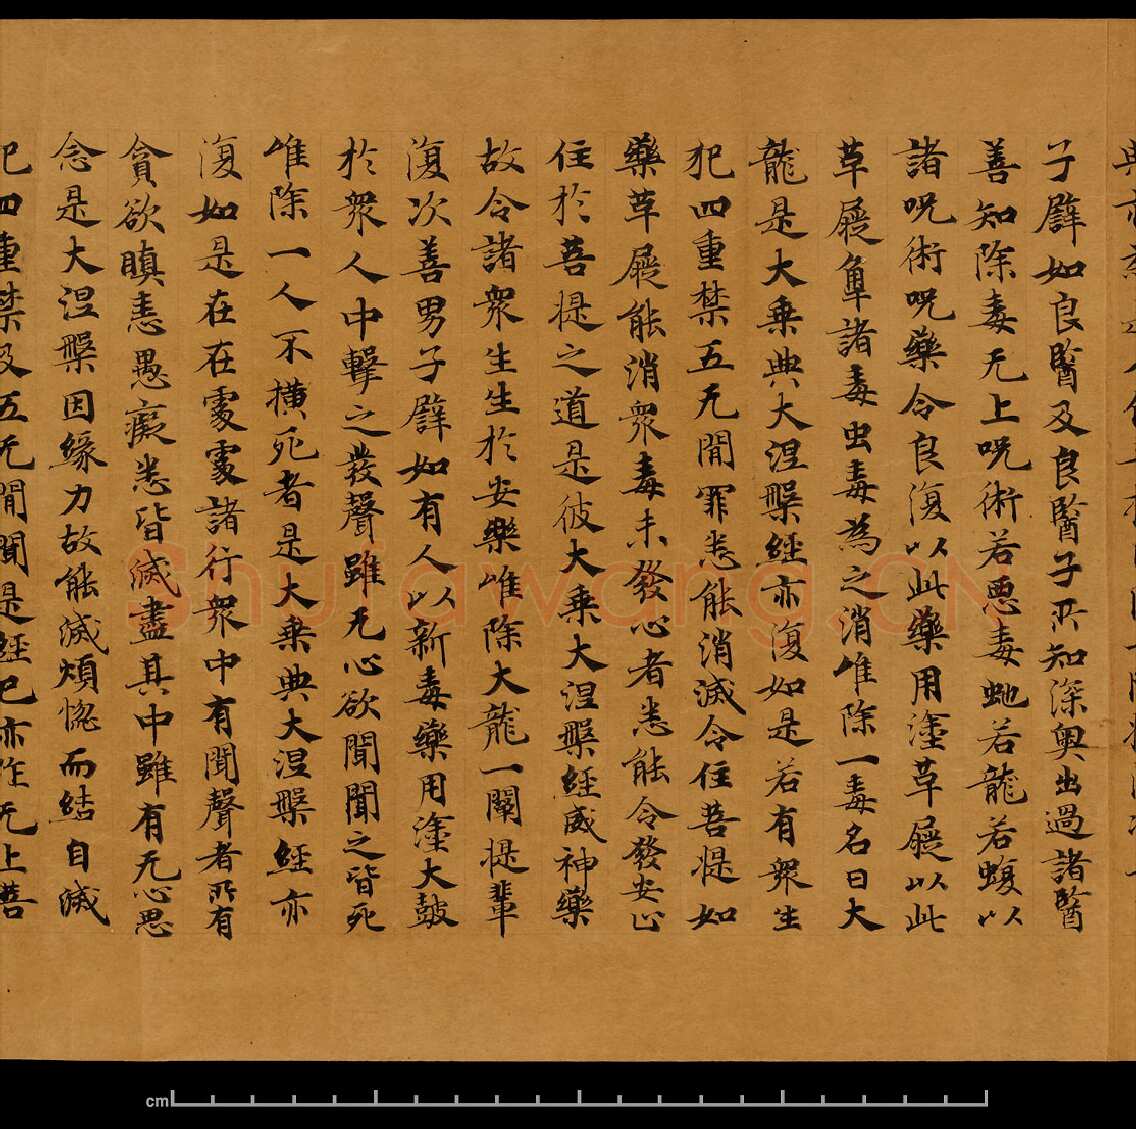 子譬如良醫及良醫子所知深奥出過諸醫
善知除毒无上呪術若惡毒虵若龍若蝮以
諸呪術呪藥令良復以此藥用塗草屣以此
草屣觸諸毒虫毒為之消唯除一毒名曰大
龍是大乗典大涅槃經亦復如是若有衆生
犯四重禁五无間罪悉能消滅令住菩提如
藥草屣能消衆毒未發心者悉能令發安心
住於菩提之道是彼大乗大涅槃經威神藥
故令諸衆生生於安樂唯除大龍一闡提輩
復次善男子譬如有人以新毒藥用塗大皷
於衆人中擊之發聲雖无心欲聞聞之皆死
唯除一人不横死者是大乗典大涅槃經亦
復如是在在處處諸行衆中有聞聲者所有
貪欲瞋恚愚癡悉皆滅盡其中雖有无心思
念是大涅槃因緣力故能滅煩惱而結自滅
犯四重禁及五无間聞是經已亦作无上菩
Shufawang.CN
cm